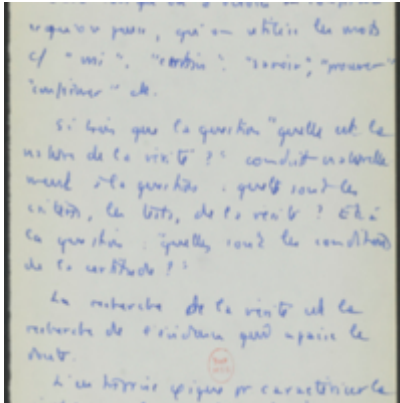 ce qu'on pense, qu'on utilise les mots
"certain", "savoir", "prouver"
"confirmer"
Si bien que la question "quelle est la
nature de la vérité ?" conduit naturelle
ment à la question : quels sont les
critères, les tests, de la vérité ? Et à
la question : quelles sont les conditions
de la certitude ?
La recherche de la vérité est la
recherche de l'évidence qui apaise le
doute.
caractériser la